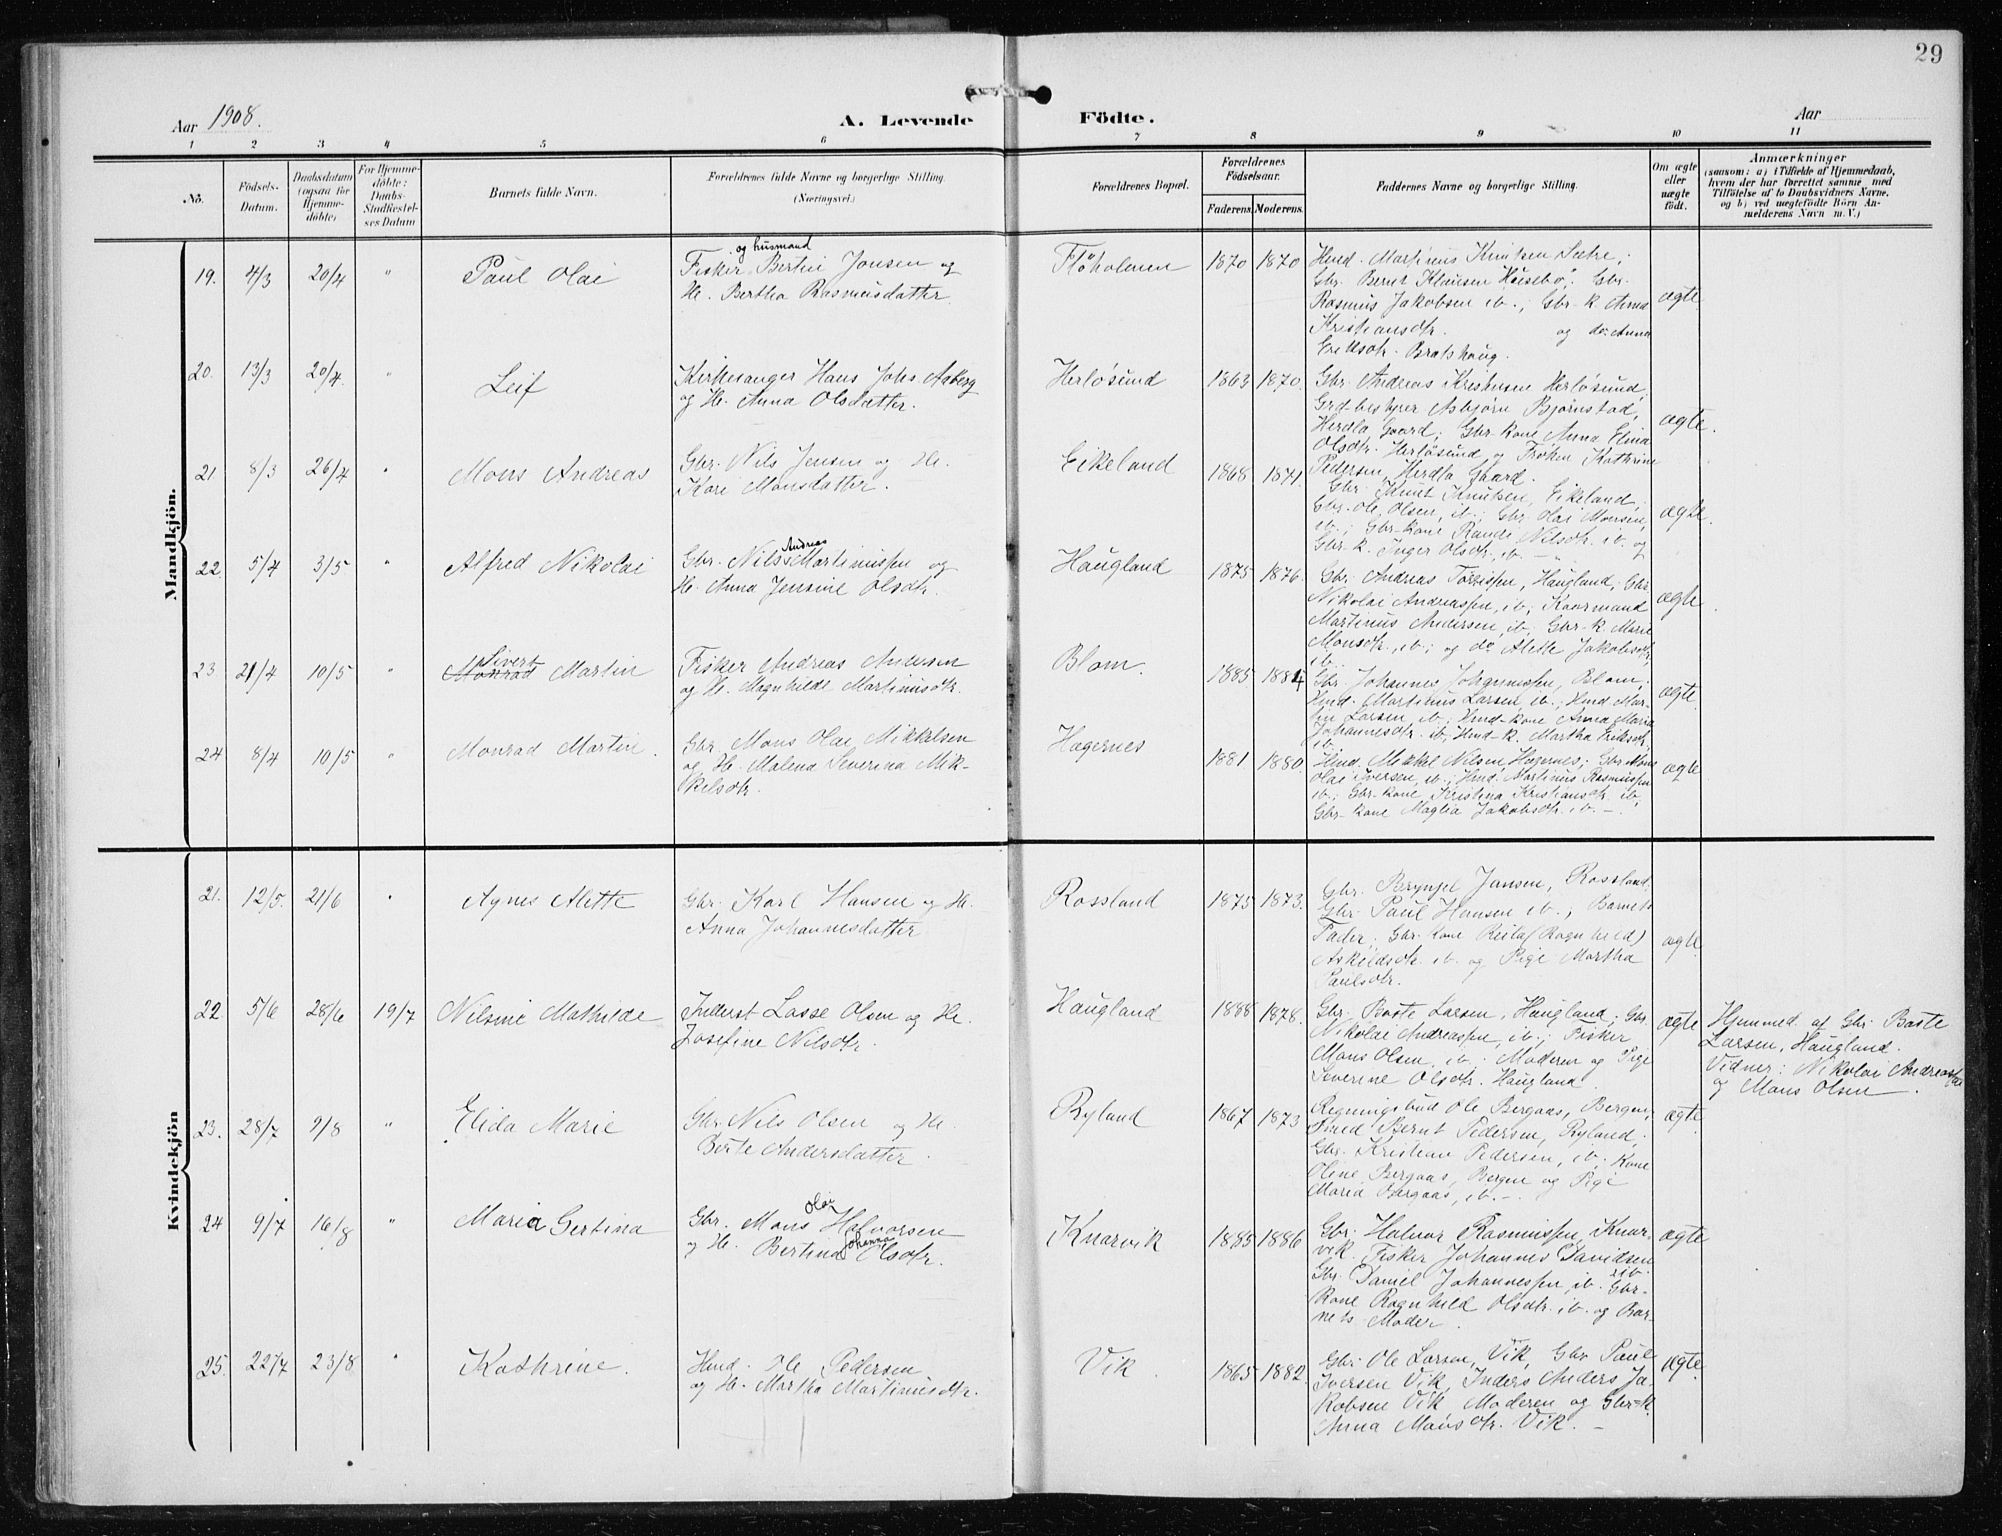 29
Aar 1908.
A. Levende Födte.
Aar
1 2 3 4 5 6 7 8 9 10 11
No.
Födsels-
Datum.
Daabsdatum
(ogsaa for
Hjemme-
döbte)
For Hjemme-
döbte:
Daabs-
Stadfæstel-
ses Datum
Barnets fulde Navn.
Forældrenes fulde Navne og borgerlige Stilling.
(Næringsvei.)
Forældrenes Bopæl.
Forældrenes
Födselsaar.
Faderens.
Moderens.
Faddernes Navne og borgerlige Stilling.
Om ægte
eller
uægte
födt.
Anmærkninger
(saasom: a) i Tilfælde af Hjemmedaab,
hvem der har forrettet samme med
Tilföielse af to Daabsvidners Navne.
og b) ved uægtefödte Börn An-
melderens Navn m. V.)
Mandkjön.
19. 4/3 20/4 " Paul Olai
og husmand
Fisker Bertin Jonsen og
H. Bertha Rasmusdatter.
Flöholmen 1870 1870
Hmd. Martinus Knutsen Sætre;
Gbr. Bernt Klausen Husebö; Gbr.
Rasmus Jakobsen ib.; Gbr-k Anna
Kristiansdtr. og do Anna
Eriksdtr. Bratshaug.
ægte
20. 13/3 20/4. " Leif
Kirkesanger Hans Johs. Asberg
og H. Anna Olsdatter.
Herlösund 1863 1870.
Gbr. Andreas Kristensen Herlösund,
Grdbestyrer Asbjörn Bjørnstad,
Herdla Gaard; Gbr-kone Anna Elina
Olsdtr. Herlösund og Fröken Kathrine
Pedersen, Herdla Gaard.
ægte.
21 8/3 26/4 " Mons Andreas
Gbr. Nils Jensen og H.
Kari Monsdatter.
Eikeland 1868 1871.
Gbr. Knut Knutsen, Eikeland;
Gbr. Ole Olsen, ib.; Gbr. Olai Monsen,
ib.; Gbr-kone Randi Nilsdtr. ib. og
Gbr-k. Inger Olsdtr. ib. –
ægte.
22 5/4 3/5 " Alfred Nikolai
Gbr. Nils Andreas Martinussen og
H. Anna Jensine Olsdtr.
Haugland 1875 1876.
Gbr. Andreas Torrissen, Haugland; Gbr.
Nikolai Andreassen, ib; Kaarmand
Martinus Andersen, ib; Gbr-k. Marie
Monsdtr., ib.; og do Alette Jakobsdtr,
ib.
ægte.
23 21/4 10/5 " Sivert Martin
Fisker Andreas Andersen
og H. Magnhilde Martinusdtr.
Blom. 1885 1884
Gbr. Johannes Johannessen, Blom;
Hmd. Martinus Larsen, ib.; Hmd Mar-
tin Larsen, ib; Hmd-kone Anna Maria
Johannesdtr. ib, Hmd-k. Martha Eriksdtr.
ib.
ægte.
24 8/4 10/5 " Monrad Martin.
Gbr. Mons Olai Mikkelsen
og H. Malena Severina Mik-
kelsdtr.
Hagernes 1881 1880.
Hmd. Mikkel Nilsen, Hagernes; Gbr. Mons
Olai Iversen, ib.; Hmd. Martinus Rasmussen
ib.; Gbr-kone Kristina Kristiansdtr. ib;
Gbr-kone Maglia Jakobsdtr. ib. –.
ægte
Kvindekjön
21. 12/5. 21/6 " Agnes Alette
Gbr. Karl Hansen og H.
Anna Johannesdatter
Rossland 1875 1873.
Gbr. Brynjel Jansen, Rossland.
Gbr. Paul Hansen ib.; Barnets
Fader; Gbr. kone Reita (Ragnhild)
Askildsdtr. ib. og Pige Martha
Paulsdtr.
ægte
22 5/6 28/6 19/7 Nilsine Mathilde
Inderst Lasse Olsen og H.
Josefine Nilsdtr.
Haugland 1888 1878.
Gbr. Baste Larsen, Haugland; Gbr.
Nikolai Andreassen, ib.; Fisker
Mons Olsen, ib.; Moderen og Pige
Severine Olsdtr. Haugland.
ægte
Hjemmed. af Gbr. Baste
Larsen, Haugland.
Vidner: Nikolai Andreassen
og Mons Olsen.
23. 28/7 9/8 " Elida Marie
Gbr. Nils Olsen og H.
Berte Andersdatter.
Ryland 1867 1873
Regningsbud Ole Bergaas, Bergen;
Smed Bernt Pedersen, Ryland;
Gbr. Kristian Pedersen, ib; Kone
Oline Bergaas, Bergen og Pige
Maria Bergaas, ib. –.
ægte.
24 9/7 16/8 " Maria Gertina
Gbr. Mons Olai Halvorsen
og H. Bertina Johanna Olsdtr.
Knarvik 1885 1886
Gbr. Halvor Rasmussen, Knar-
vik. Fisker Johannes Davidsen
ib.
Gbr. Daniel Johannessen, ib. Gbr-
kone Ragnhild Olsdtr. ib. og Bar-
nets Moder.
ægte
25. 22/7 23/8 " Kathrine.
Hmd. Ole Pedersen
og H. Martha Martinusdtr.
Vik 1865 1882.
Gbr. Ole Larsen, Vik, Gbr Paul
Iversen Vik, Inders Anders Ja-
kobsen Vik, Moderen og Gbr-k
Anna Monsdtr. Vik. –
ægte.